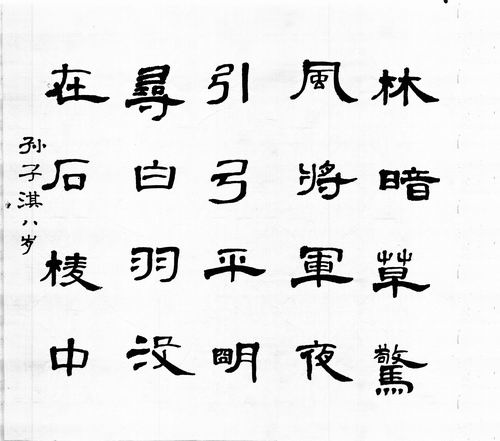 林暗草驚
風將軍夜
引弓平明
尋白羽没
在石棱中
孙子淇八岁